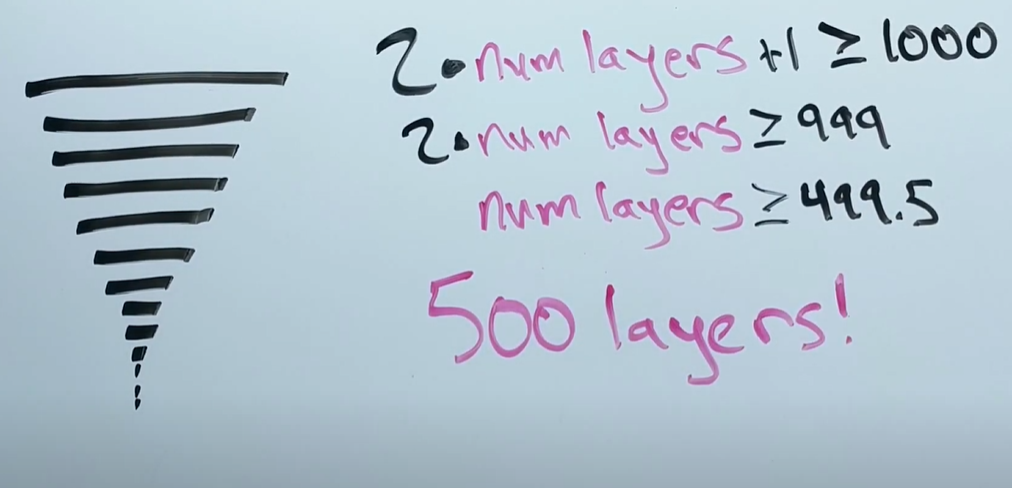 2·num layers +1 ≥ 1000
2·num layers ≥ 999
num layers ≥ 499.5
500 layers!